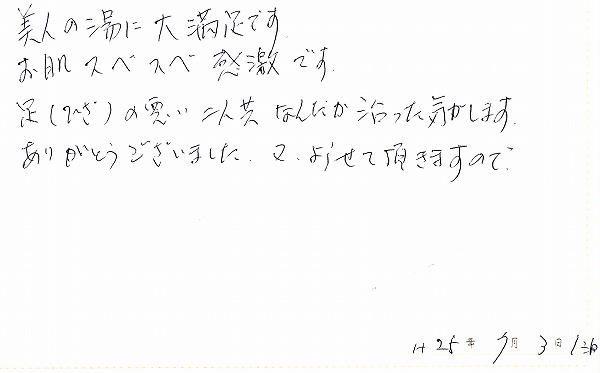 美人の湯に大満足です.
お肌スベスベ感激です.
足(ひざ)の悪い二人共なんだか治った気がします.
ありがとうございました. 又、よらせて頂きますので.
H25年 7月 3日 1泊